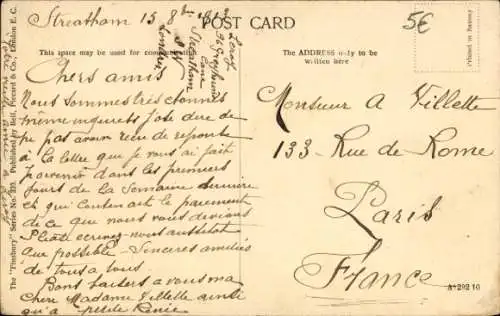 Streatham 15 8bre 1913
POST CARD
5€
Leroy
36 Greyhound
Lane
Streatham
S W
Londres
This space may be used for communication
The ADDRESS only to be
written here
Printed in Saxony
Chers amis
Nous sommes très étonnés
même inquiets j'ose dire de
ne pas avoir reçu de réponse
à la lettre que je vous ai fait
parvenir dans les premiers
jours de la semaine dernière
et qui contenait le paiement
de ce que nous vous devions
Please écrivez-nous aussitôt
que possible - Sincères amitiés
de tous à tous.
Bons baisers à vous ma
Chère Madame Villette ainsi
qu'à petite Renée
Monsieur A Villette
133 Rue de Rome
Paris
France
A-292 10
The "Finsbury" Series No. Published by Bell, Percard & Co., London E.C.